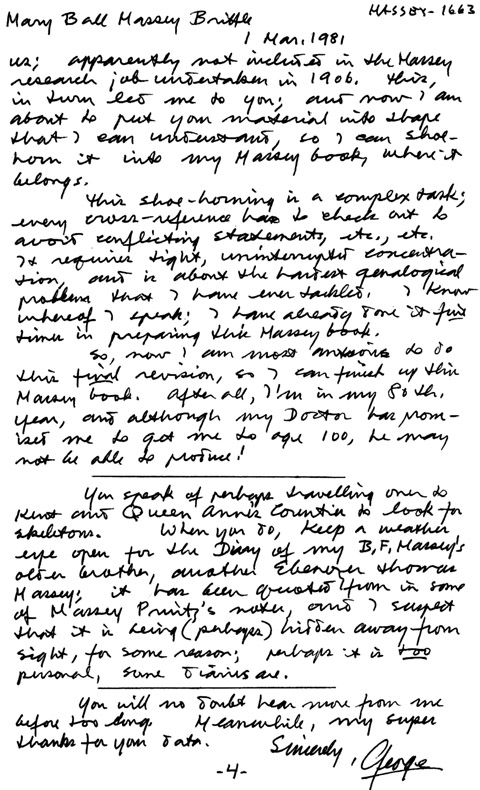 Mary Ball Massey Brittle
MASSEY-1663
1 Mar. 1981
us; apparently not included in the Massey
research job undertaken in 1906. This,
in turn led me to you; and now I am
about to put your material into shape
that I can understand, so I can shoe-
horn it into my Massey book, where it
belongs.
This shoe-horning is a complex task;
every cross-reference has to check out to
avoid conflicting statements, etc., etc.
It requires tight, uninterrupted concentra-
tion, and is about the hardest genalogical
problem that I have ever tackled. I know
whereof I speak; I have already done it five
times in preparing this Massey book.
So, now I am most anxious to do
this final revision, so I can finish up this
Massey book. After all, I'm in my 80th.
year, and although my Doctor has prom-
ised me to get me to age 100, he may
not be able to produce!
You speak of perhaps travelling over to
Kent and Queen Anne's Counties to look for
skeletons. When you do, keep a weather
eye open for the Diary of my B.F. Massey's
older brother, another Ebenezer Thomas
Massey; it has been quoted from in some
of Massey Pruitt's notes, and I suspect
that it is being (perhaps) hidden away from
sight, for some reason; perhaps it is too
personal, some diaries are.
You will no doubt hear more from me
before too long. Meanwhile, my super
thanks for your data.
Sincerely, George
-4-